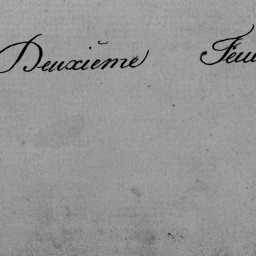 Deuxième Feui